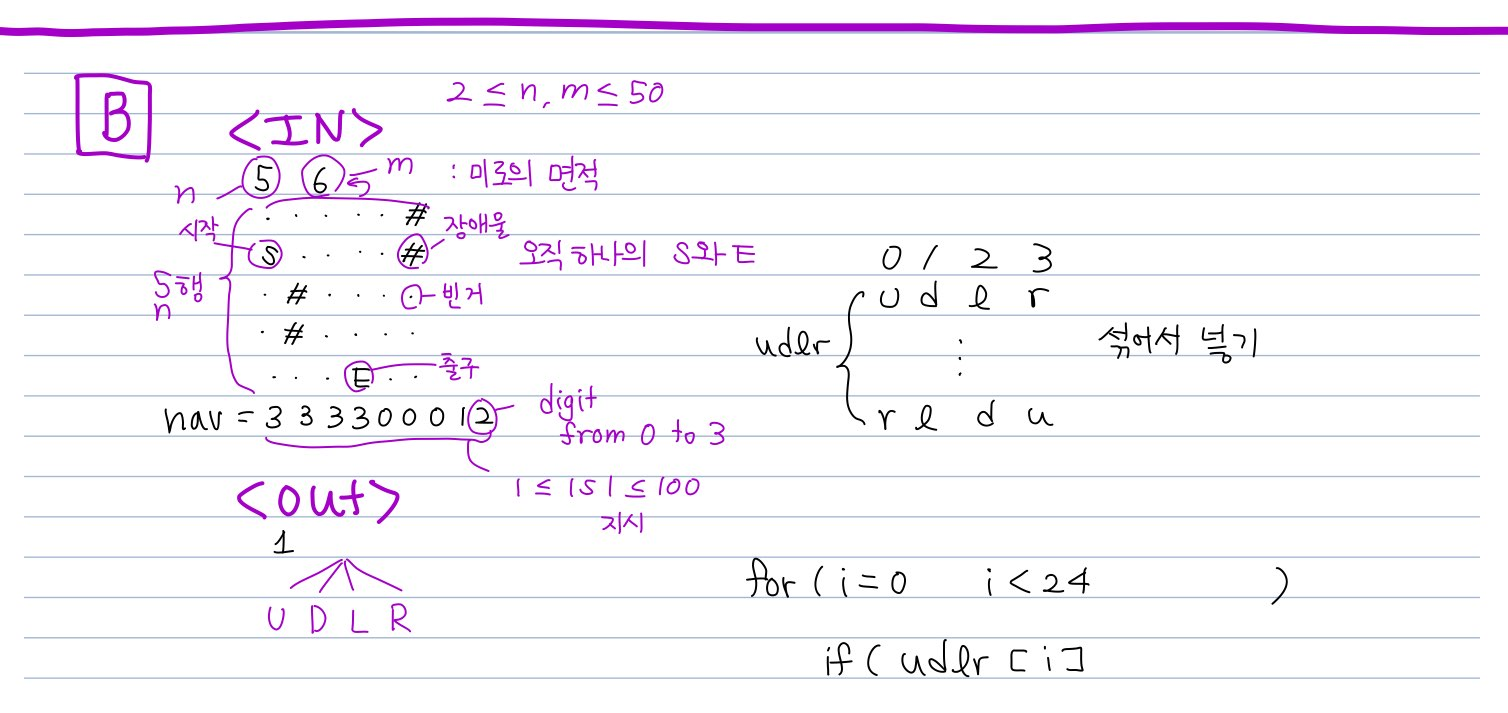 B
2 ≤ n, m ≤ 50
<IN>
n 5 6 m : 미로의 면적
. . . . . #
시작 S . . . . # 장애물
오직 하나의 S와 E
5행
n
. # . . . . 빈거
. # . . . .
. . . E . . 출구
nav = 333300012
digit
from 0 to 3
1 ≤ |s| ≤ 100
지시
<out>
1
U D L R
0 1 2 3
u d l r
udlr
⋮
섞어서 넣기
r l d u
for ( i = 0 i < 24 )
if ( udlr [ i ]